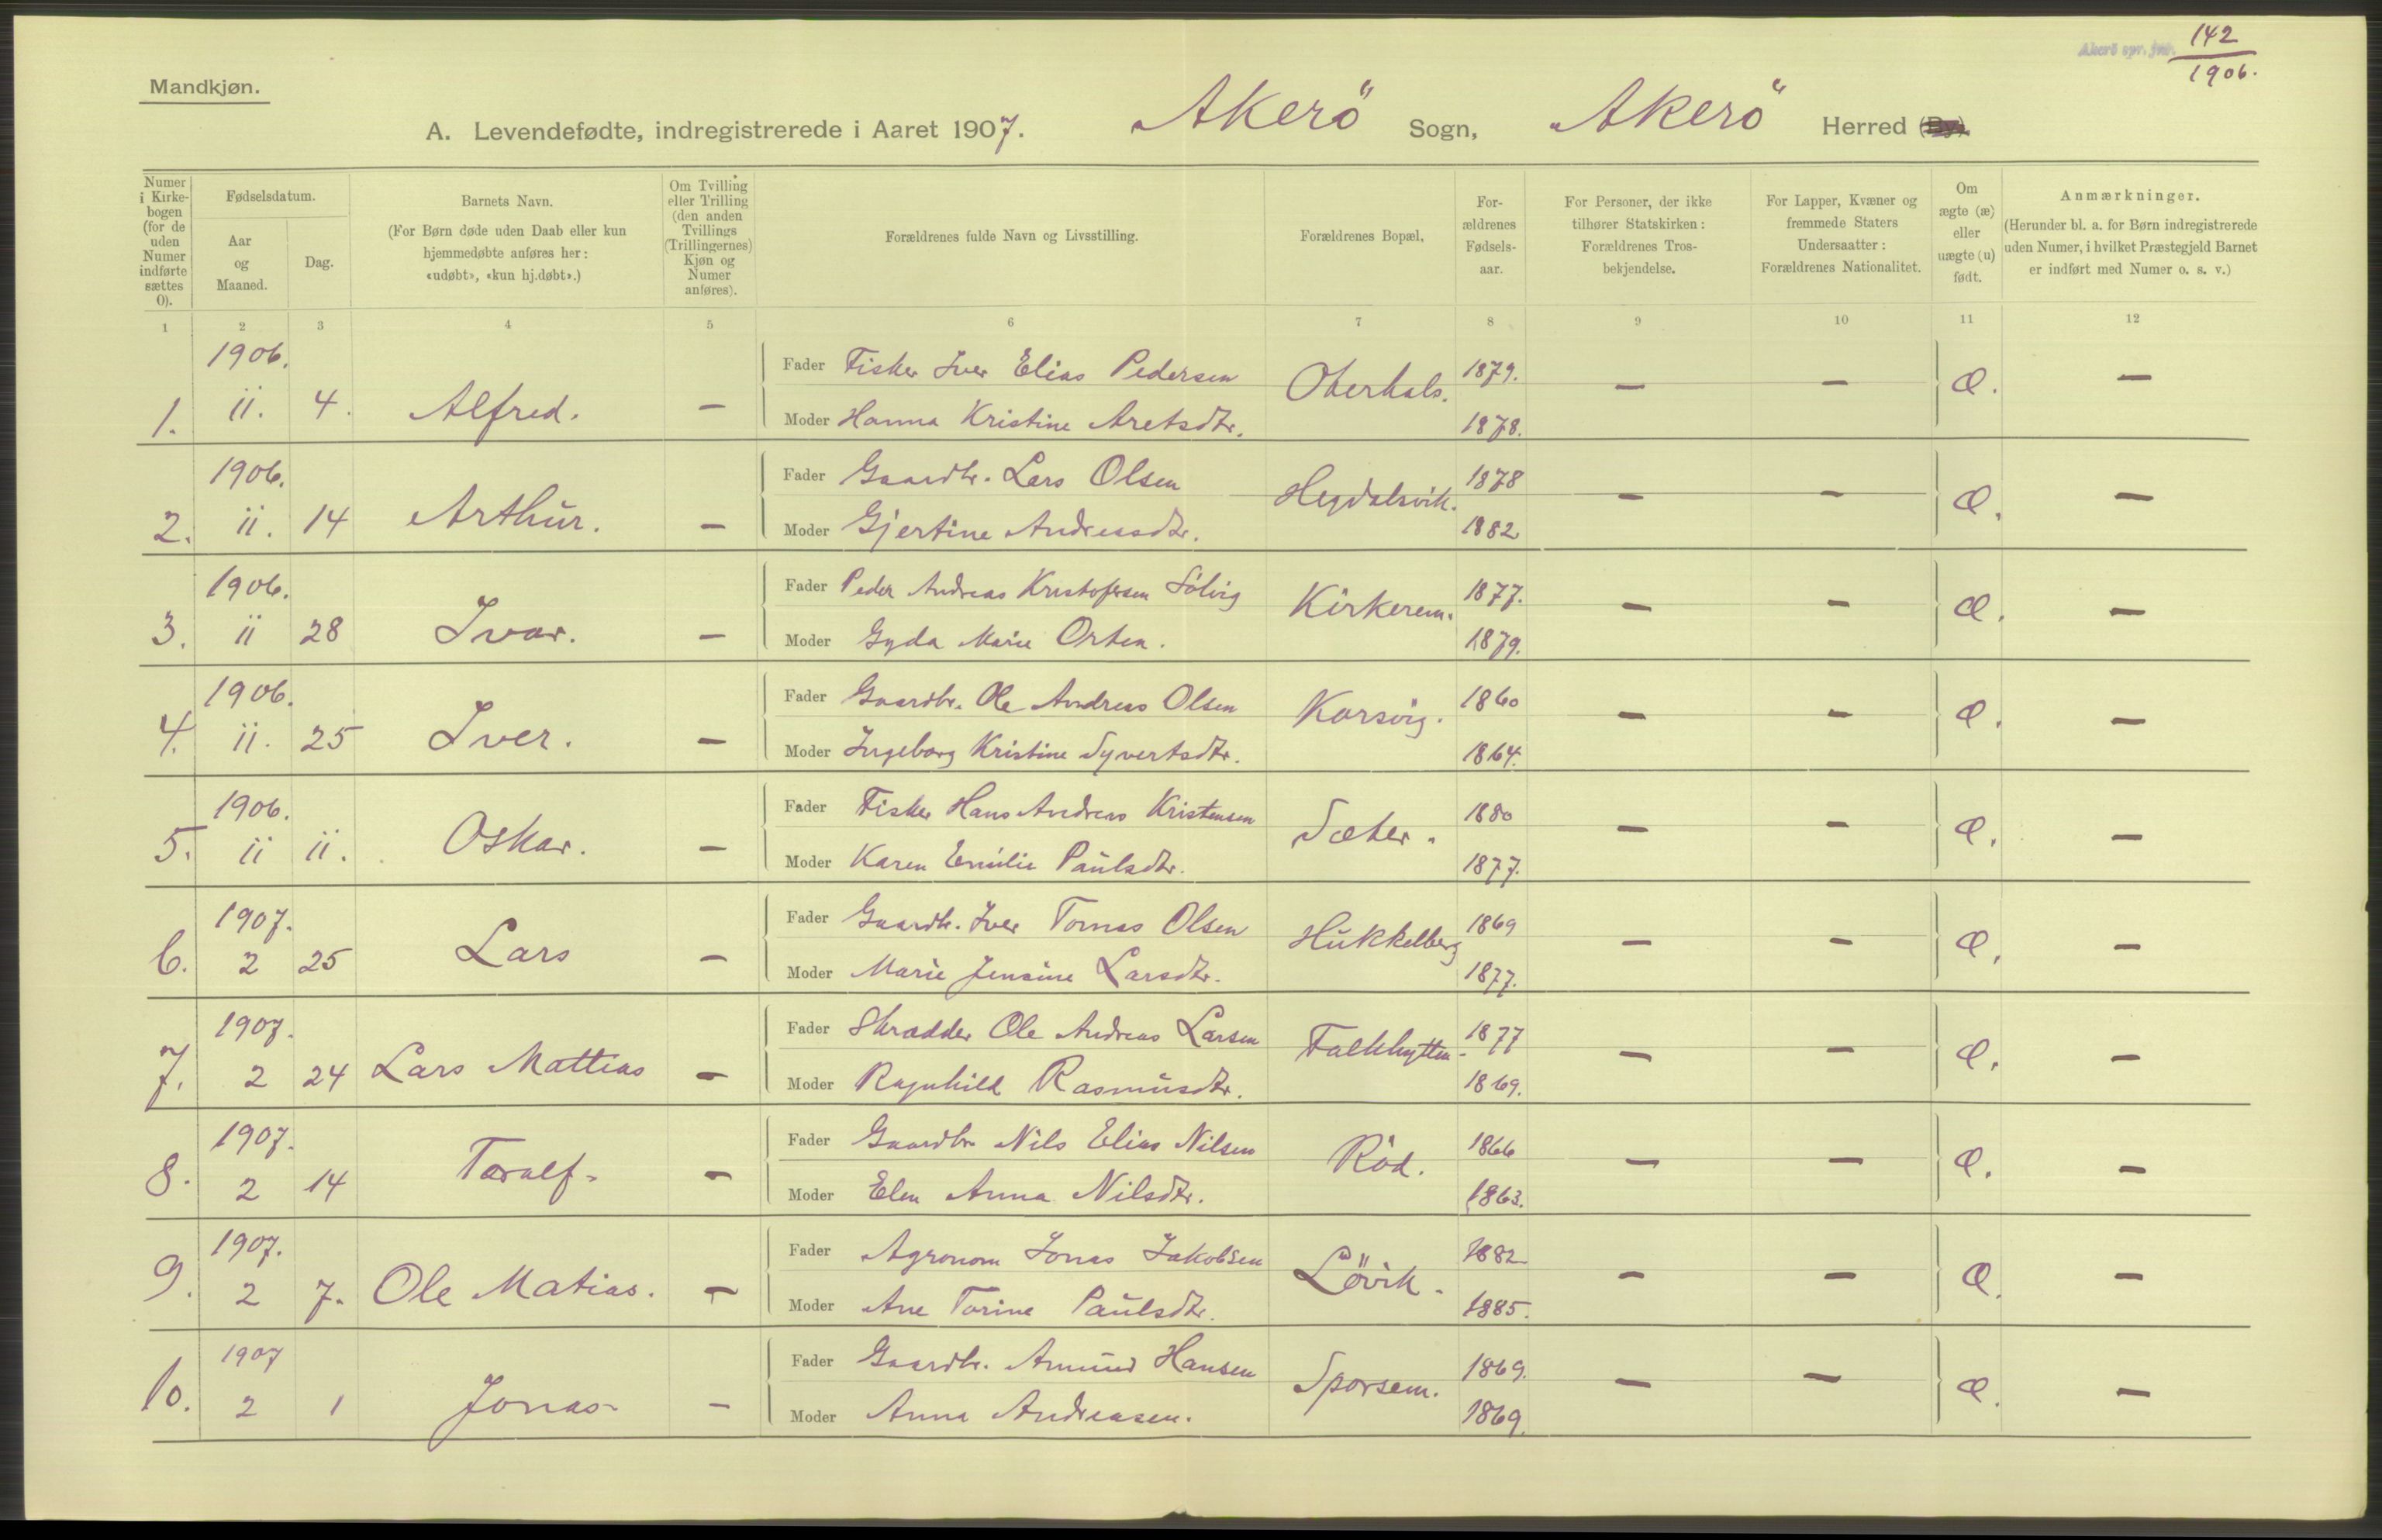 Akerö spr. jnr. 142
1906.
Mandkjøn.
A. Levendefødte, indregistrerede i Aaret 1907. Akerö Sogn, Akerö Herred (By).
Numer i Kirkebogen (for de uden Numer indførte sættes 0).
Fødselsdatum.
Aar og Maaned.
Dag.
Barnets Navn.
(For Børn døde uden Daab eller kun
hjemmedøbte anføres her:
«udøbt», «kun hj.døbt».)
Om Tvilling
eller Trilling
(den anden
Tvillings
(Trillingernes)
Kjøn og
Numer
anføres).
Forældrenes fulde Navn og Livsstilling.
Forældrenes Bopæl,
For-
ældrenes
Fødsels-
aar.
For Personer, der ikke
tilhører Statskirken:
Forældrenes Tros-
bekjendelse.
For Lapper, Kvæner og
fremmede Staters
Undersaatter:
Forældrenes Nationalitet.
Om
ægte (æ)
eller
uægte (u)
født.
Anmærkninger.
(Herunder bl. a. for Børn indregistrerede
uden Numer, i hvilket Præstegjeld Barnet
er indført med Numer o. s. v.)
1 2 3 4 5 6 7 8 9 10 11 12
1906.
1. 11. 4. Alfred. —
Fader Fisker Iver Elias Pedersen Oterhals. 1879. — — æ. —
Moder Hanna Kristine Aretsdtr. 1878.
1906.
2. 11. 14 Arthur. —
Fader Gaardbr. Lars Olsen Hegdalsvik. 1878 — — æ. —
Moder Gjertine Andreasdtr. 1882
1906.
3. 11 28 Ivar. —
Fader Peder Andreas Kristofersen Sölvig Kirkerem. 1877. — — æ. —
Moder Gyda Marie Orten. 1879.
1906.
4. 11. 25 Iver. —
Fader Gaardbr. Ole Andreas Olsen Korsvig. 1860 — — æ. —
Moder Ingeborg Kristine Syvertsdtr. 1864.
1906.
5. 11 11. Oskar. —
Fader Fisker Hans Andreas Kristensen Sæter. 1880 — — æ. —
Moder Karen Emilie Paulsdtr. 1877.
1907.
6. 2 25 Lars —
Fader Gaardbr. Iver Tomas Olsen Hukkelberg 1869 — — æ. —
Moder Marie Jensine Larsdtr. 1877.
1907.
7. 2 24 Lars Mattias —
Fader Skrædder Ole Andreas Larsen Falkhytten. 1877 — — æ. —
Moder Ragnhild Rasmusdtr. 1869.
1907.
8. 2 14 Toralf. —
Fader Gaardbr Nils Elias Nilsen Röd. 1866 — — æ. —
Moder Elen Anna Nilsdtr. 1863.
1907.
9. 2 7. Ole Matias. —
Fader Agronom Jonas Jakobsen Lövik. 1882 — — æ. —
Moder Ane Torine Paulsdtr. 1885.
1907
10. 2 1 Jonas. —
Fader Gaardbr. Amund Hansen Sporsem. 1869. — — æ. —
Moder Anna Andreasen. 1869.